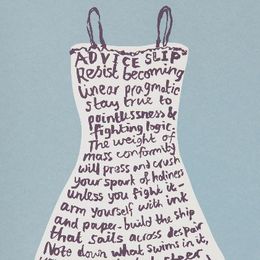 ADVICE SLIP
Resist becoming
linear pragmatic
stay true to
pointlessness &
fighting logic.
The weight of
mass conformity
will press and crush
your spark of holiness
unless you fight it -
arm yourself with ink
and paper - build the ship
that sails across despair
Note down what swims in it,